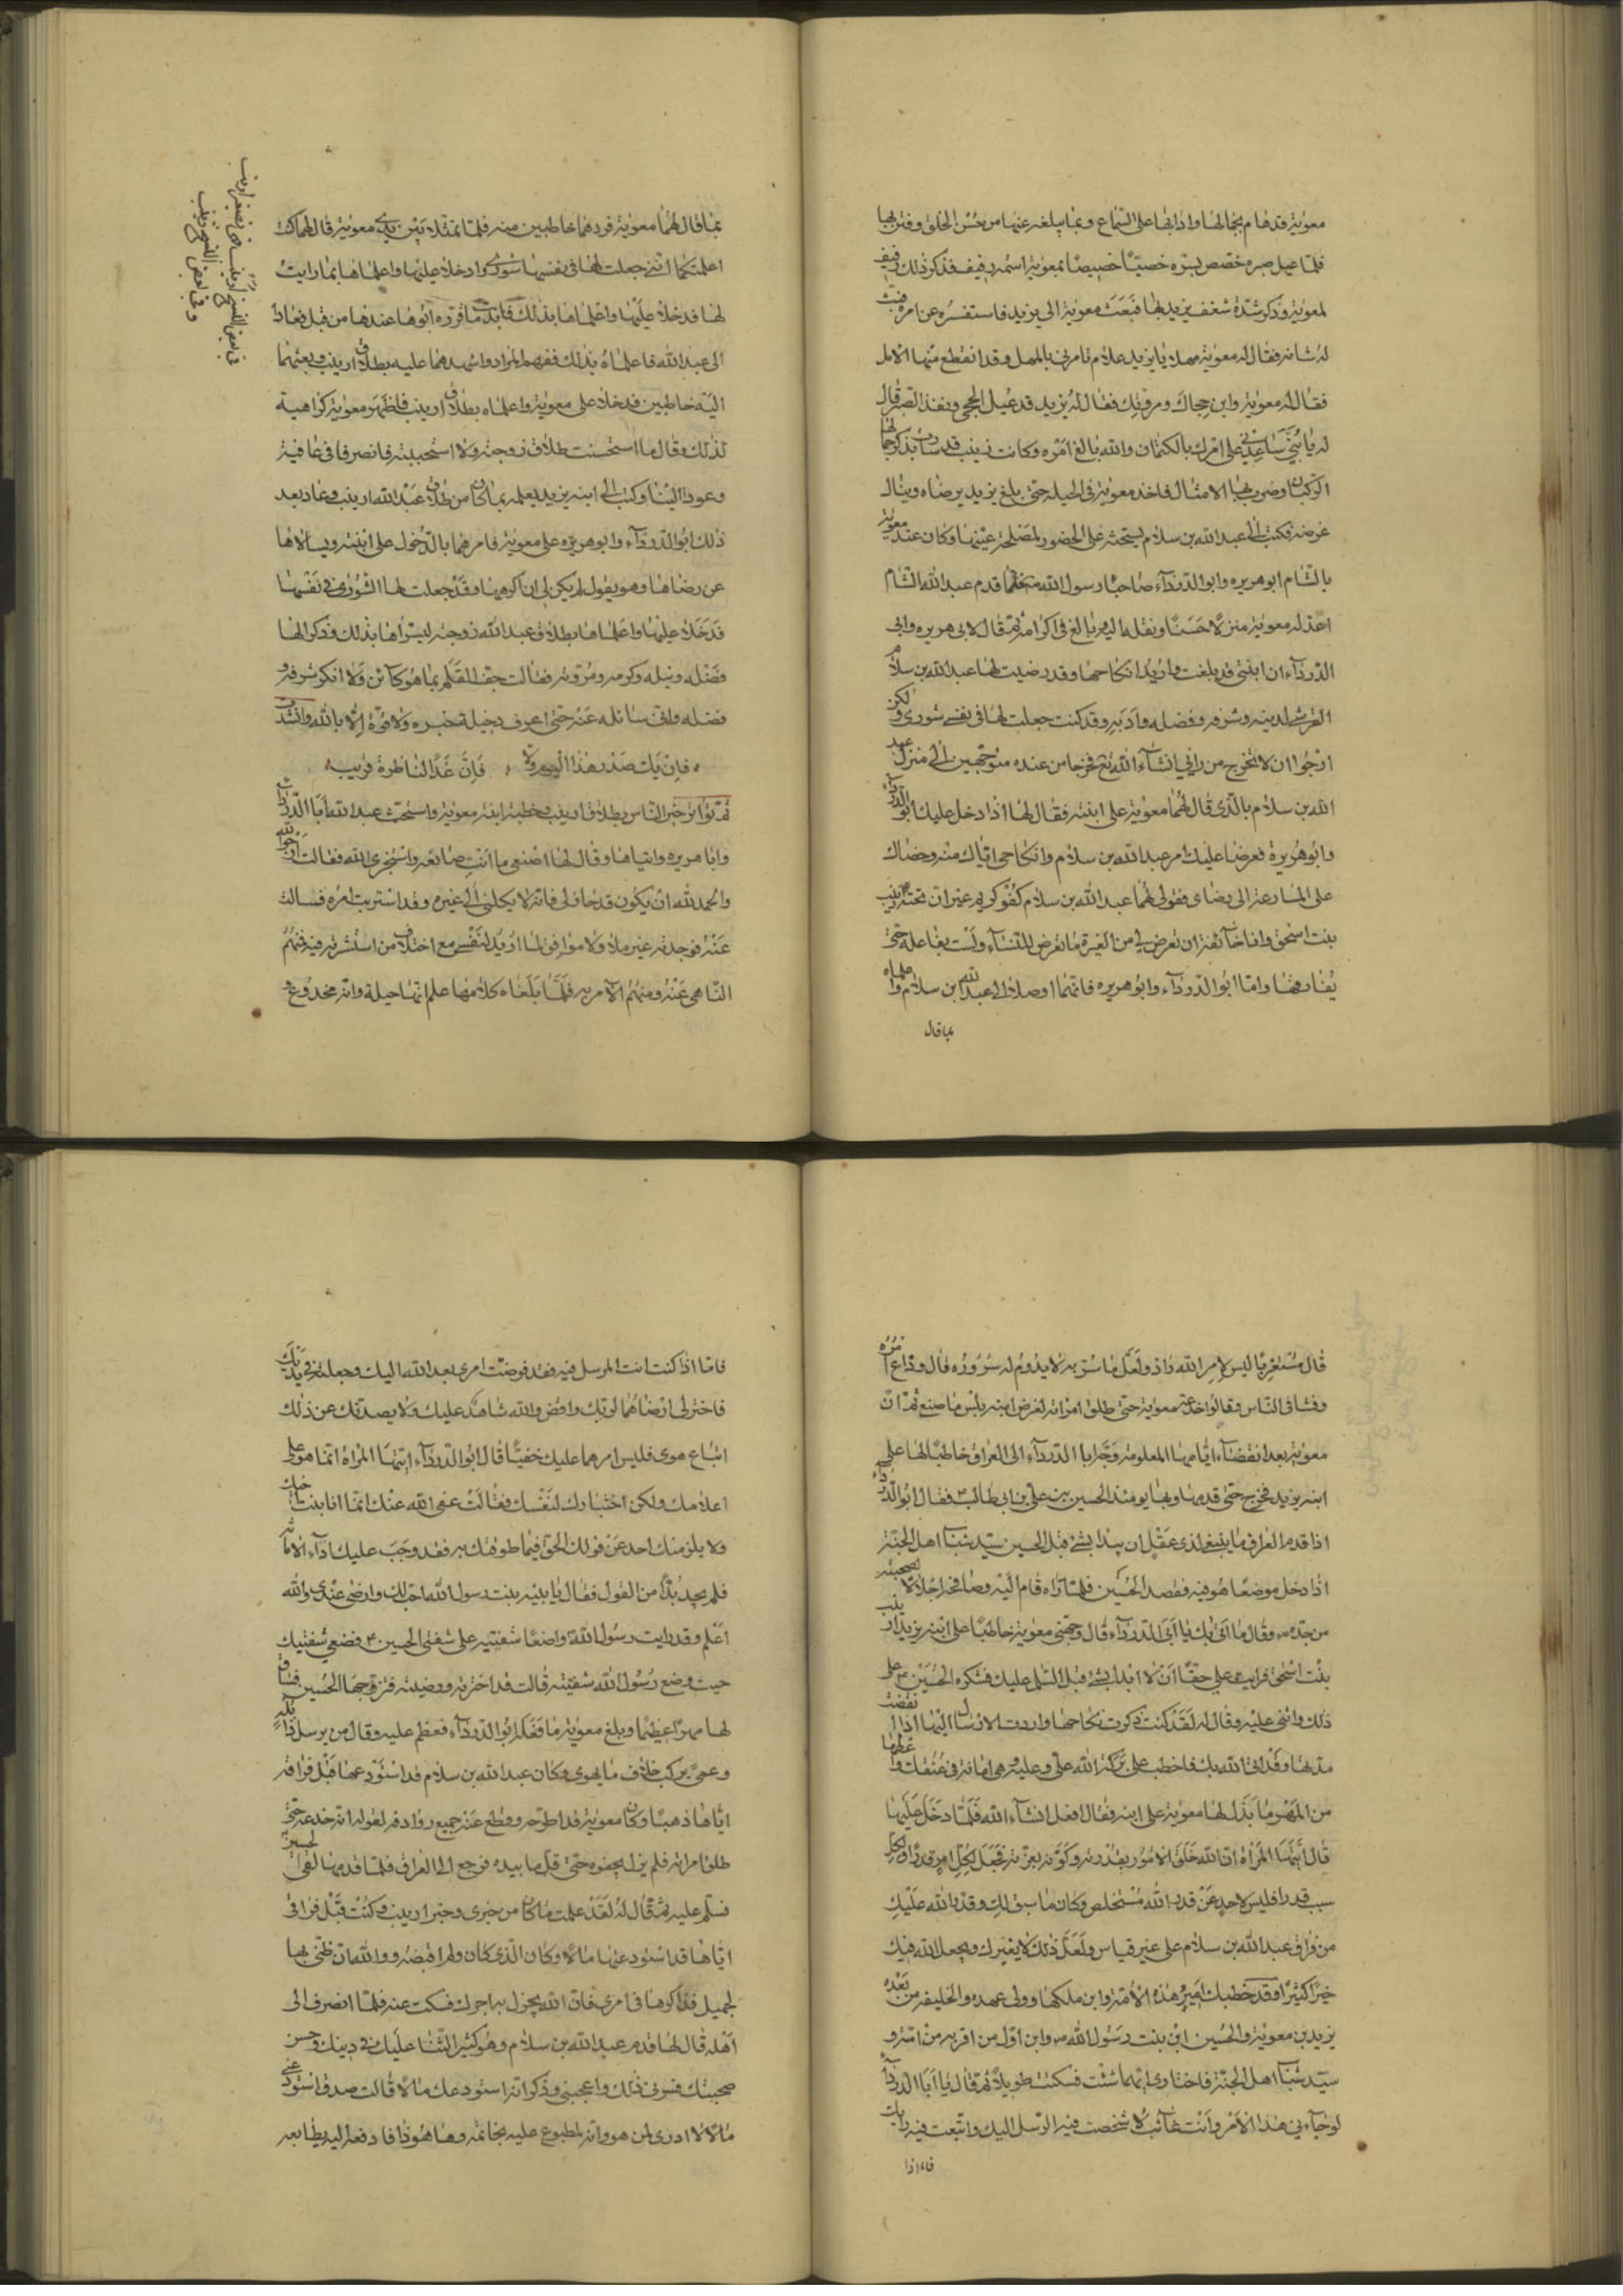 معوية قد هام بجمالها وادابها على السماع وبما يبلغه عنها من حسن الخلق وفتن بها
فلما عيل صبره خصص بسره خصيّا خصيصًا بمعوية اسمه رفيف فذكر ذلك رفيف
لمعوية وذكر شدّة شغف يزيد بها فبعث معوية الى يزيد فاستفسره عن امره فبث
له شانه فقال له معوية مهلا يا يزيد علام تامرنى بالمهل وقد انقطع منها الامل
فقال له معوية واين حجاك ومروتك فقال له يزيد قد عيل الحجى ونفذ الصبر قال
له يا بنى ساعدنى على امرك بالكتمان والله بالغ امره وكانت زينب قد سارت بذكر جمالها
الركبان وضرب بها الامثال فاخذ معوية فى الحيلة حتى بلغ يزيد رضاه وينال
غرضه فكتب الى عبد الله بن سلام يستحثه على الحضور لمصلحة عينها وكان عند معوية
بالشام ابو هريره وابو الدرداء صاحبا رسول الله فلما قدم عبد الله الشام
اعد له معوية منزلا حسنا ونقله اليه وبالغ فى اكرامه ثم قال لابى هريره وابى
الدرداء ان ابنتى قد بلغت واريد انكاحها وقد رضيت لها عبد الله بن سلام
القرشى لدينه وشرفه وفضله وادبه وقد كنت جعلت لها فى نفسها شورى ولكن
ارجوا ان لا تخرج من رايى انشاء الله تع فخرجا من عنده متوجهين الى منزل عبد
الله بن سلام بالذى قال لهما معوية على ابنته فقال لها اذا دخل عليك ابو الدرداء
وابو هريرة فعرضا عليك امر عبد الله بن سلام وانكاحى اياك منه وحضاك
على المسارعة الى رضاى فقولى لهما عبد الله بن سلام كفو كريم غير ان تحته زينب
بنت اسحق وانا خائفة ان تعرض لى من الغيرة ما تعرض للنساء ولست بفاعلة حتى
يفارقها واما ابو الدرداء وابو هريره فانهما اوصلا الى عبد الله بن سلام واعلماه
بما قال
بما قال لهما معوية فردهما خاطبين منه فلما تمثلا بين يدى معوية قال لهما كنت
اعلمتكما اننى جعلت لها فى نفسها شورى وادخلا عليها واعلماها بما رايت
لها فدخلا عليها واعلماها بذلك فابدت ما قرره ابوها عندها من قبل فعادا
الى عبد الله فاعلماه بذلك ففهم المراد واشهدهما عليه بطلاق ارينب وبعثهما
اليه خاطبين فدخلا على معوية واعلماه بطلاق ارينب فاظهر معوية كراهية
لذلك وقال ما استحسنت طلاق زوجته ولا استحببته فانصرفا فى عافية
وعودا الينا وكتب الى ابنه يزيد يعلمه بما كان من طلاق عبد الله ارينب وعاد بعد
ذلك ابو الدرداء وابو هريره على معوية فامرهما بالدخول على ابنته ويسالاها
عن رضاها وهو يقول لم يكن لى ان اكرهها وقد جعلت لها الشورى فى نفسها
فدخلا عليها واعلماها بطلاق عبد الله زوجته ليسراها بذلك وذكرا لها
فضله ونبله وكرمه ومروته فقالت جف القلم بما هو كائن ولا انكر شرفه و
فضله وانى سائله عنه حتى اعرف دخيلة خبره ولا قوة الا بالله وانشدت
فان يك صدر هذا اليوم ولا ، فان غدا لناظره قريب
ثم تواتر خبر الناس بطلاق ارينب وخطبة ابنة معوية واستحث عبد الله ابا الدرداء
وابا هريره واتياها وقال لها اصنعى ما انت صانعه واستخرى الله فقالت ارجوا لله
والحمد لله ان يكون قد خار لى فانه لا يكلنى الى غيره وقد استربت امره فسالت
عنه فوجدته غير ملائم ولا موافق لما اريد لنفسى مع اختلاف من استشرته فيه فمنهم
الناهى عنه ومنهم الآمر به فلما بلغاه كلامها علم انها حيلة وانه مخدوع و
قال متعزيا ليس لامر الله راد ولعل ما سر به لا يدوم له سروره قال وذاع امره
وفشا فى الناس وقالوا خدعه معوية حتى طلق امراته لغرض ابنه بئس ما صنع ثم ان
معوية بعد انقضاء ايامها المعلومة وجه ابا الدرداء الى العراق خاطبا لها على
ابنه يزيد فخرج حتى قدمها وبها يومئذ الحسين بن على بن ابى طالب فقال ابو الدرداء
اذا قدم العراق ما ينبغى لذى عقل ان يبدا بشئ قبل الحسين سيد شباب اهل الجنة
اذا دخل موضعا هو فيه فقصد الحسين فلما راه قام اليه وصافحه اجلالا لصحبته
من جده وقال ما اتى بك يا ابا الدرداء قال وجهنى معوية خاطبا على ابنه يزيد ارينب
بنت اسحق فرايت على حقا ان لا ابدا بشئ قبل السلم عليك فشكره الحسين على
ذلك واثنى عليه وقال له لقد كنت ذكرت نكاحها واردت الارسال اليها اذا انقضت
عدتها وقد اتى الله بك فاخطب على بركة الله على وعليه وهى امانة فى عنقك واعطها
من المهر ما بذل لها معوية على ابنه فقال افعل انشاء الله فلما دخل عليها
قال ايتها المراة ان الله خلق الامور بقدرته وكونها بعزته فجعل لكل امر قدرا ولكل
سبب قدرا فليس لاحد عن قدر الله مستخلص وكان ما سبق لك وقدر الله عليك
من فراق عبد الله بن سلام على غير قياس ولعل ذلك لا يغيرك ويجعل الله فيك
خيرا كثيرا وقد خطبك امير هذه الامة وابن ملكها وولى عهده والخليفه من بعده
يزيد بن معوية والحسين ابن بنت رسول الله وابن اول من اقر به من امته و
سيد شباب اهل الجنة فاختارى ايهما شئت فسكتت طويلا ثم قال يا ابا الدرداء
لو جاءنى هذا الامر وانت غائب لاشخصت فيه الرسل اليك واتبعت فيه رايك
فاما اذا
فاما اذا كنت انت المرسل فيه فقد فوضت امرى بعد الله اليك وجعلته فى يديك
فاختر لى ارضاهما لربك وامض والله شاهد عليك ولا يصدنك عن ذلك
اتباع هوى فليس امرهما عليك خفيا قال ابو الدرداء ايتها المراة انما هو على
اعلامك ولكن اختيارك لنفسك فقالت عفى الله عنك انما انا بنت اخيك
ولا يلزمنك احد عن قولك الحق فيما طوقتك به فقد وجب عليك اداء الامانة
فلم يجد بدا من القول فقال يا بنيه بنت رسول الله احب الى وارضى عندى والله
اعلم وقد رايت رسول الله واضعا شفتيه على شفتى الحسين فضعى شفتيك
حيث وضع رسول الله شفتيه قالت قد اخترته ورضيته فتزوجها الحسين فساق
لها مهرا عظيما وبلغ معوية ما فعل ابو الدرداء فعظم عليه وقال من يرسل ذا بله
وعمى يركب خلاف ما يهوى وكان عبد الله بن سلام قد استودعها قبل فراقه
اياها ذهبا وكان معوية قد اطرحه وقطع عنه جميع روادفه لقوله انه خدعه حتى
طلق امراته فلم يزل يجفوه حتى قل ما بيده فرجع الى العراق فلما قدمها لقى الحسين
فسلم عليه ثم قال له لقد علمت ما كان من خبرى وخبر ارينب وكنت قبل فراقى
اياها قد استودعتها مالا وكان الذى كان ولم اقبضه ووالله ان ظنى بها
لجميل فذاكرها فى امرى فان الله يجزل به اجرك فسكت عنه فلما انصرف الى
اهله قال لها قدم عبد الله بن سلام وهو كثير الثنا عليك فى دينك وحسن
صحبتك فسرنى ذلك واعجبنى وذكر انه استودعك مالا قالت صدق استودعنى
مالا لا ادرى لمن هو وانه لمطبوع عليه بخاتمه وها هو ذا فادفعه اليه بطابعه